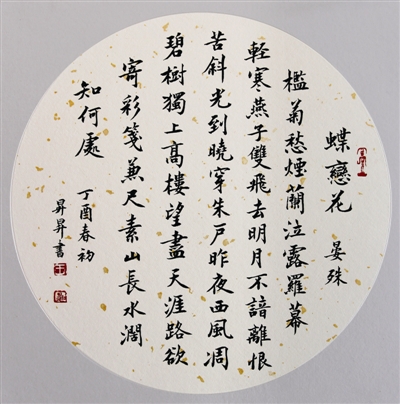 蝶戀花
晏殊
檻菊愁煙蘭泣露羅幕
輕寒燕子雙飛去明月不諳離恨
苦斜光到曉穿朱戶昨夜西風凋
碧樹獨上高樓望盡天涯路欲
寄彩箋兼尺素山長水濶
知何處
丁酉春初
昇昇書